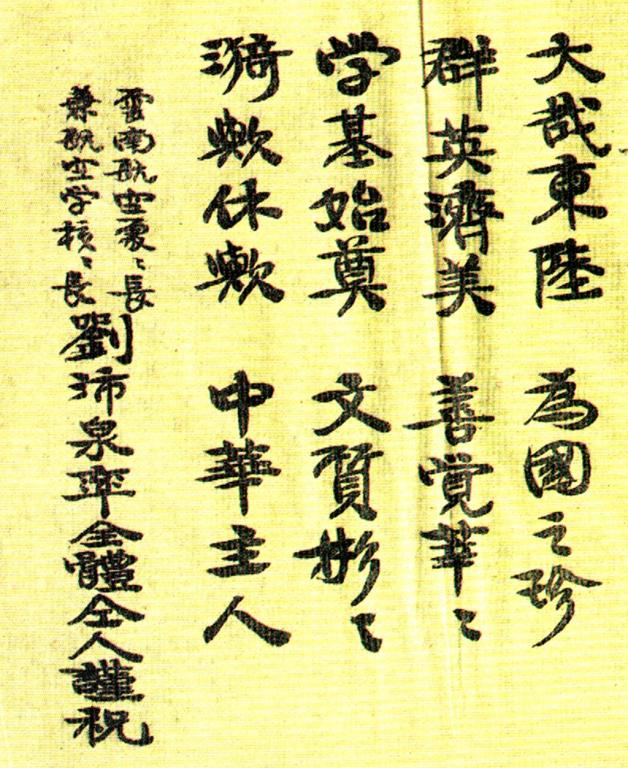 大哉東陸 為國之珍
群英濟美 善覚莘〻
学基始奠 文質彬〻
漪歟休歟 中華主人
雲南航空處〻長
兼航空学校〻長
劉沛泉率全體仝人謹祝